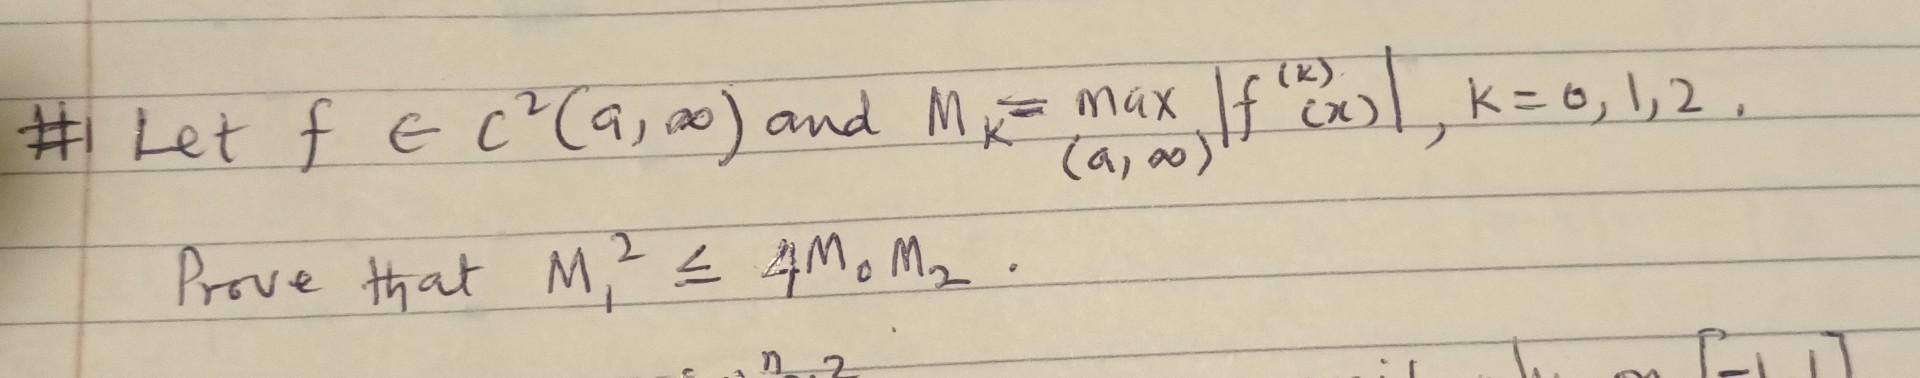 #1 Let f ∈ C²(a, ∞) and M_k = max_(a, ∞) |f^(k)(x)|, k = 0, 1, 2.
Prove that M₁² ≤ 4M₀M₂.
n 2 [-1, 1]